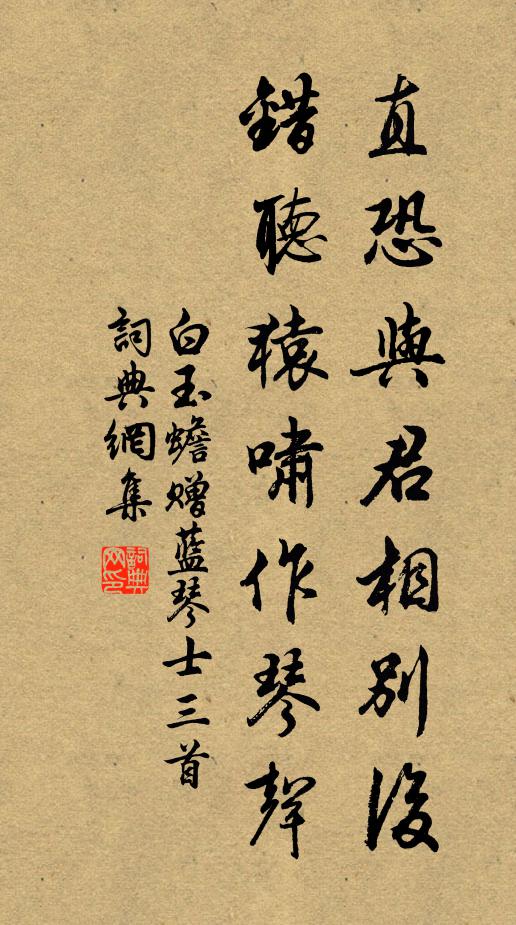 直恐與君相別後
錯聽猿嘯作琴聲
白玉蟾贈藍琴士三首
詞典網集
詞典网印